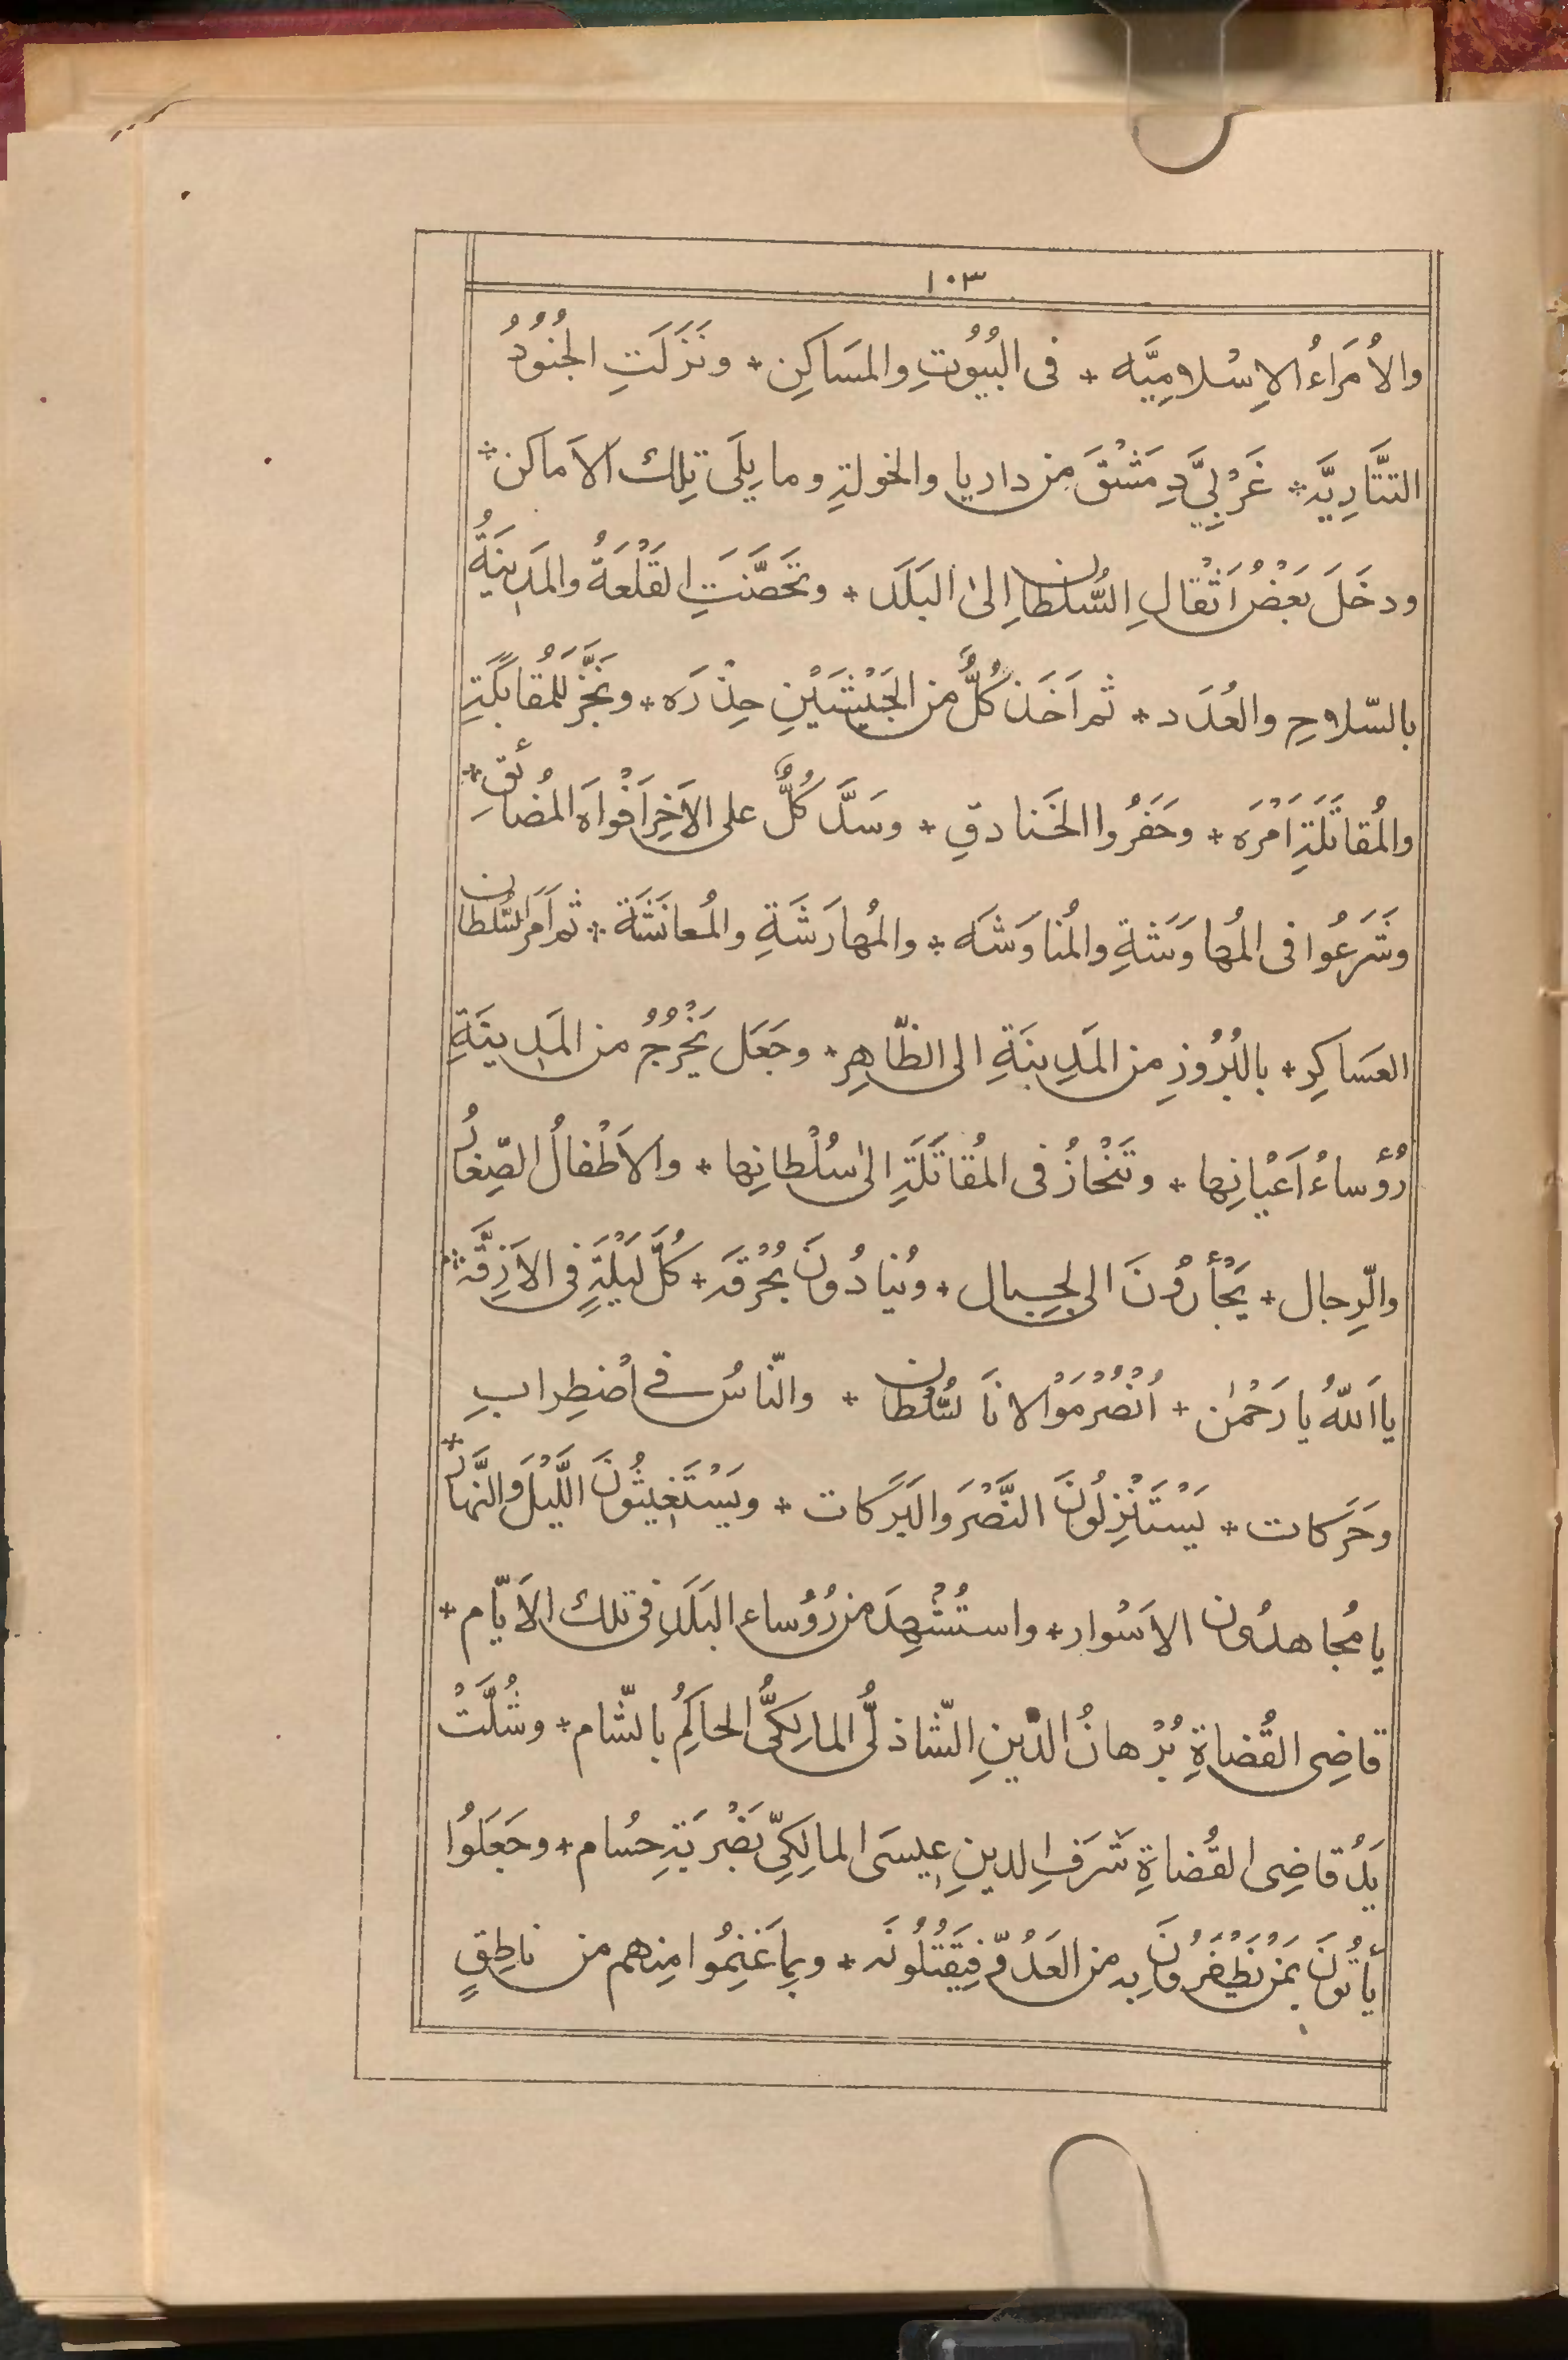 ١٠٣
والاُمَرَاءُ الاِسْلامِيَّه * فى البُيُوْتِ والمَسَاكِن * ونَزَلَتِ الجُنُوْدُ
التتَّارِيَّة * غَرْبِيَّ دِمَشْقَ مِن داريا والخولةِ وما يِلَى تِلك الاَماكن *
ودخَلَ بَعْضُ اَثْقالِ السُّلْطانِ اِلىٰ البَلَد * وتَحَصَّنَتِ القَلْعَةُ والمَدِينَةُ
بالسّلاحِ والعُدَد * ثم اَخَذ كُلٌّ من الجَيْشَيْنِ حِذْرَه * ونَجَّزَ للمُقابَلَةِ
والمُقاتَلَةِ اَمْرَه * وحَفَرُوا الخَنادقِ * وسَدَّ كُلٌّ على الاَخِرِ اَفْواهَ المُضائِق *
وشَرَعُوا فى المُهاوَشَةِ والمُناوَشَه * والمُهارَشَةِ والمُعانَشَة * ثم اَمَرَ السُّلطان
العَسَاكِر * بالبُرُوْزِ مِن المَدِينَةِ الى الظّاهِر * وجَعَل يَخْرُجُ من المَدِينَةِ
رُؤساءُ اَعْيانِها * وتَنْحازُ فى المُقاتَلَةِ الىٰ سُلْطانِها * والاَطْفالُ الصِّغارُ
والرِّجال * يَجْأَرُوْنَ الى لجِبال * ويُنادُونَ بحُرْقَه * كُلَّ لَيْلَةٍ فى الاَزِقَّة *
يا اَللّهُ يا رَحْمٰن * اُنْصُرْ مَوْلانَا لسُّلْطان * والنّاسُ فے اضْطِرابِ
وحَرَكات * يَسْتَنْزِلُونَ النَّصْرَ والبَرَكات * ويَسْتَغِيثُونَ اللَّيْلَ والنَّهارَ *
يا مُجاهدُون الاَسْوار * واستُشْهِدَ من رُؤُساء البَلَدِ فى تلك الاَيّام *
قاضِى القُضاةِ بُرْهانُ الدّينِ الشّاذلُّى المالِكىُّ الحاكِمُ بالشّام * وشُلَّتْ
يَدُ قاضِى القُضاةِ شَرَفِ الدينِ عِيسَى المالِكِيّ بضَرْبَةِ حُسام * وجَعَلُوا
يأتُوْنَ بمَن يَظْفَرُوْنَ به من العَدُوِّ فيَقْتُلُونَه * وبما غَنِمُوا مِنهم من ناطِقٍ